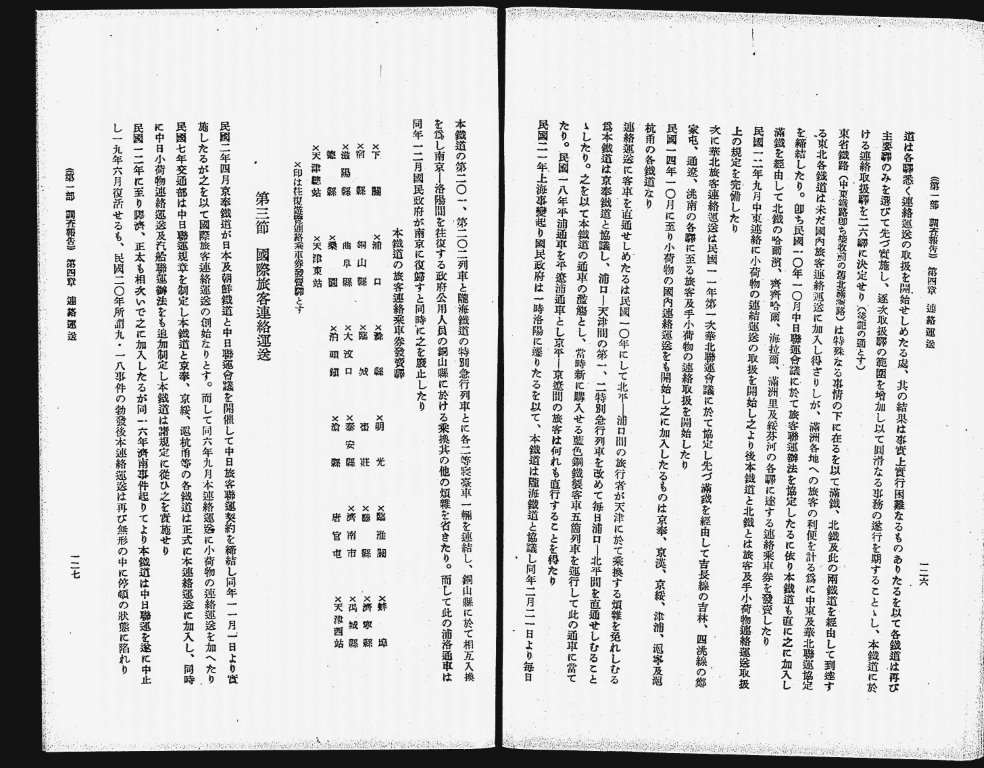 (第一部 調査報告) 第四章 連絡運送
一二六
道は各驛悉く連絡運送の取扱を開始せしめたる處、其の結果は事實上實行困難なるものありたるを以て各鐵道は再び
主要驛のみを選びて先づ實施し、逐次取扱驛の範圍を增加し以て圓滑なる事務の遂行を期することゝし、本鐵道に於
ける連絡取扱驛を二六驛に決定せり(後記の通と)
東省鐵路(中東鐵路即ち接收前の舊北滿鐵路)は特殊なる事情の下に在るを以て滿鐵、北鐵及此の兩鐵道を經由して到達す
る東北各鐵道は未だ國內旅客連絡運送に加入し得ざりしが、滿洲各地への旅客の利便を計る爲に中東及華北聯運協定
を締結したり。卽ち民國一〇年一〇月中日聯運會議に於て旅客聯運辦法を協定したるに依り本鐵道も直に之に加入し
滿鐵を經由して北鐵の哈爾濱、齊齊哈爾、海拉爾、滿洲里及綏芬河の各驛に達する連絡乘車券を發賣したり
民國一二年九月中東連絡に小荷物の連結運送の取扱を開始し之より後本鐵道と北鐵とは旅客及手小荷物連絡運送取扱
上の規定を完備したり
次に華北旅客連絡運送は民國一一年第一次華北聯運會議に於て協定し先づ滿鐵を經由して吉長線の吉林、四洮線の鄭
家屯、通遼、洮南の各驛に至る旅客及手小荷物の連絡取扱を開始したり
民國一四年一〇月に至り小荷物の國內連絡運送をも開始し之に加入したるものは京奉、京漢、京綏、津浦、滬寧及滬
杭甬の各鐵道なり
連絡運送に客車を直通せしめたるは民國一〇年にして北平—浦口間の旅行者が天津に於て乘換する煩雜を免れしむる
爲本鐵道は京奉鐵道と協議し、浦口—天津間の第一、二特別急行列車を改めて每日浦口—北平間を直通せしむること
ゝしたり。之を以て本鐵道の通車の濫觴とし、當時新に購入せる藍色鋼鐵製客車五箇列車を運行して此の通車に當て
たり。民國一八年平浦通車を平遼浦通車とし京平—京遼間の旅客は何れも直行することを得たり
民國二一年上海事變起り國民政府は一時洛陽に遷りたるを以て、本鐵道は隴海鐵道と協議し同年二月二一日より每日
本鐵道の第二〇一、第二〇二列車と隴海鐵道の特別急行列車とに各二等寢臺車一輛を連結し、銅山縣に於て相互入換
を爲し南京—洛陽間を往復する政府公用人員の銅山縣に於ける乘換其の他の煩雜を省きたり。而して此の浦洛通車は
同年一二月國民政府が南京に復歸すと同時に之を廢止したり
本鐵道の旅客連絡乘車券發賣驛
×下關 ×浦口 ×滁縣 ×明光 ×臨淮關 ×蚌埠
×宿縣 銅山縣 ×臨城 ×棗莊 ×滕縣 ×濟寧縣
×滋陽縣 曲阜縣 ×大汶口 ×泰安縣 ×濟南市 ×禹城縣
德縣 ×桑園 ×泊頭鎭 ×滄縣 唐官屯 ×天津西站
×天津總站 ×天津東站
×印は往復遊覽連絡乘車券發賣驛とす
第三節 國際旅客連絡運送
民國二年四月京奉鐵道が日本及朝鮮鐵道と中日聯運會議を開催して中日旅客聯運契約を締結し同年一一月一日より實
施したるが之を以て國際旅客連絡運送の創始なりとす。而して同六年九月本連絡運送に小荷物の連絡運送を加へたり
民國七年交通部は中日聯運規章を制定し本鐵道と京奉、京綏、滬杭甬等の各鐵道は正式に本連絡運送に加入し、同時
に中日小荷物連絡運送及汽船聯運辦法をも追加制定し本鐵道は諸規定に從ひ之を實施せり
民國一二年に至り膠濟、正太も相次いで之に加入したるが同一六年濟南事件起りてより本鐵道は中日聯運を遂に中止
し一九年六月復活せるも、民國二〇年所謂九・一八事件の勃發後本連絡運送は再び無形の中に停頓の狀態に陷れり
(第一部 調査報告) 第四章 連絡運送
一二七